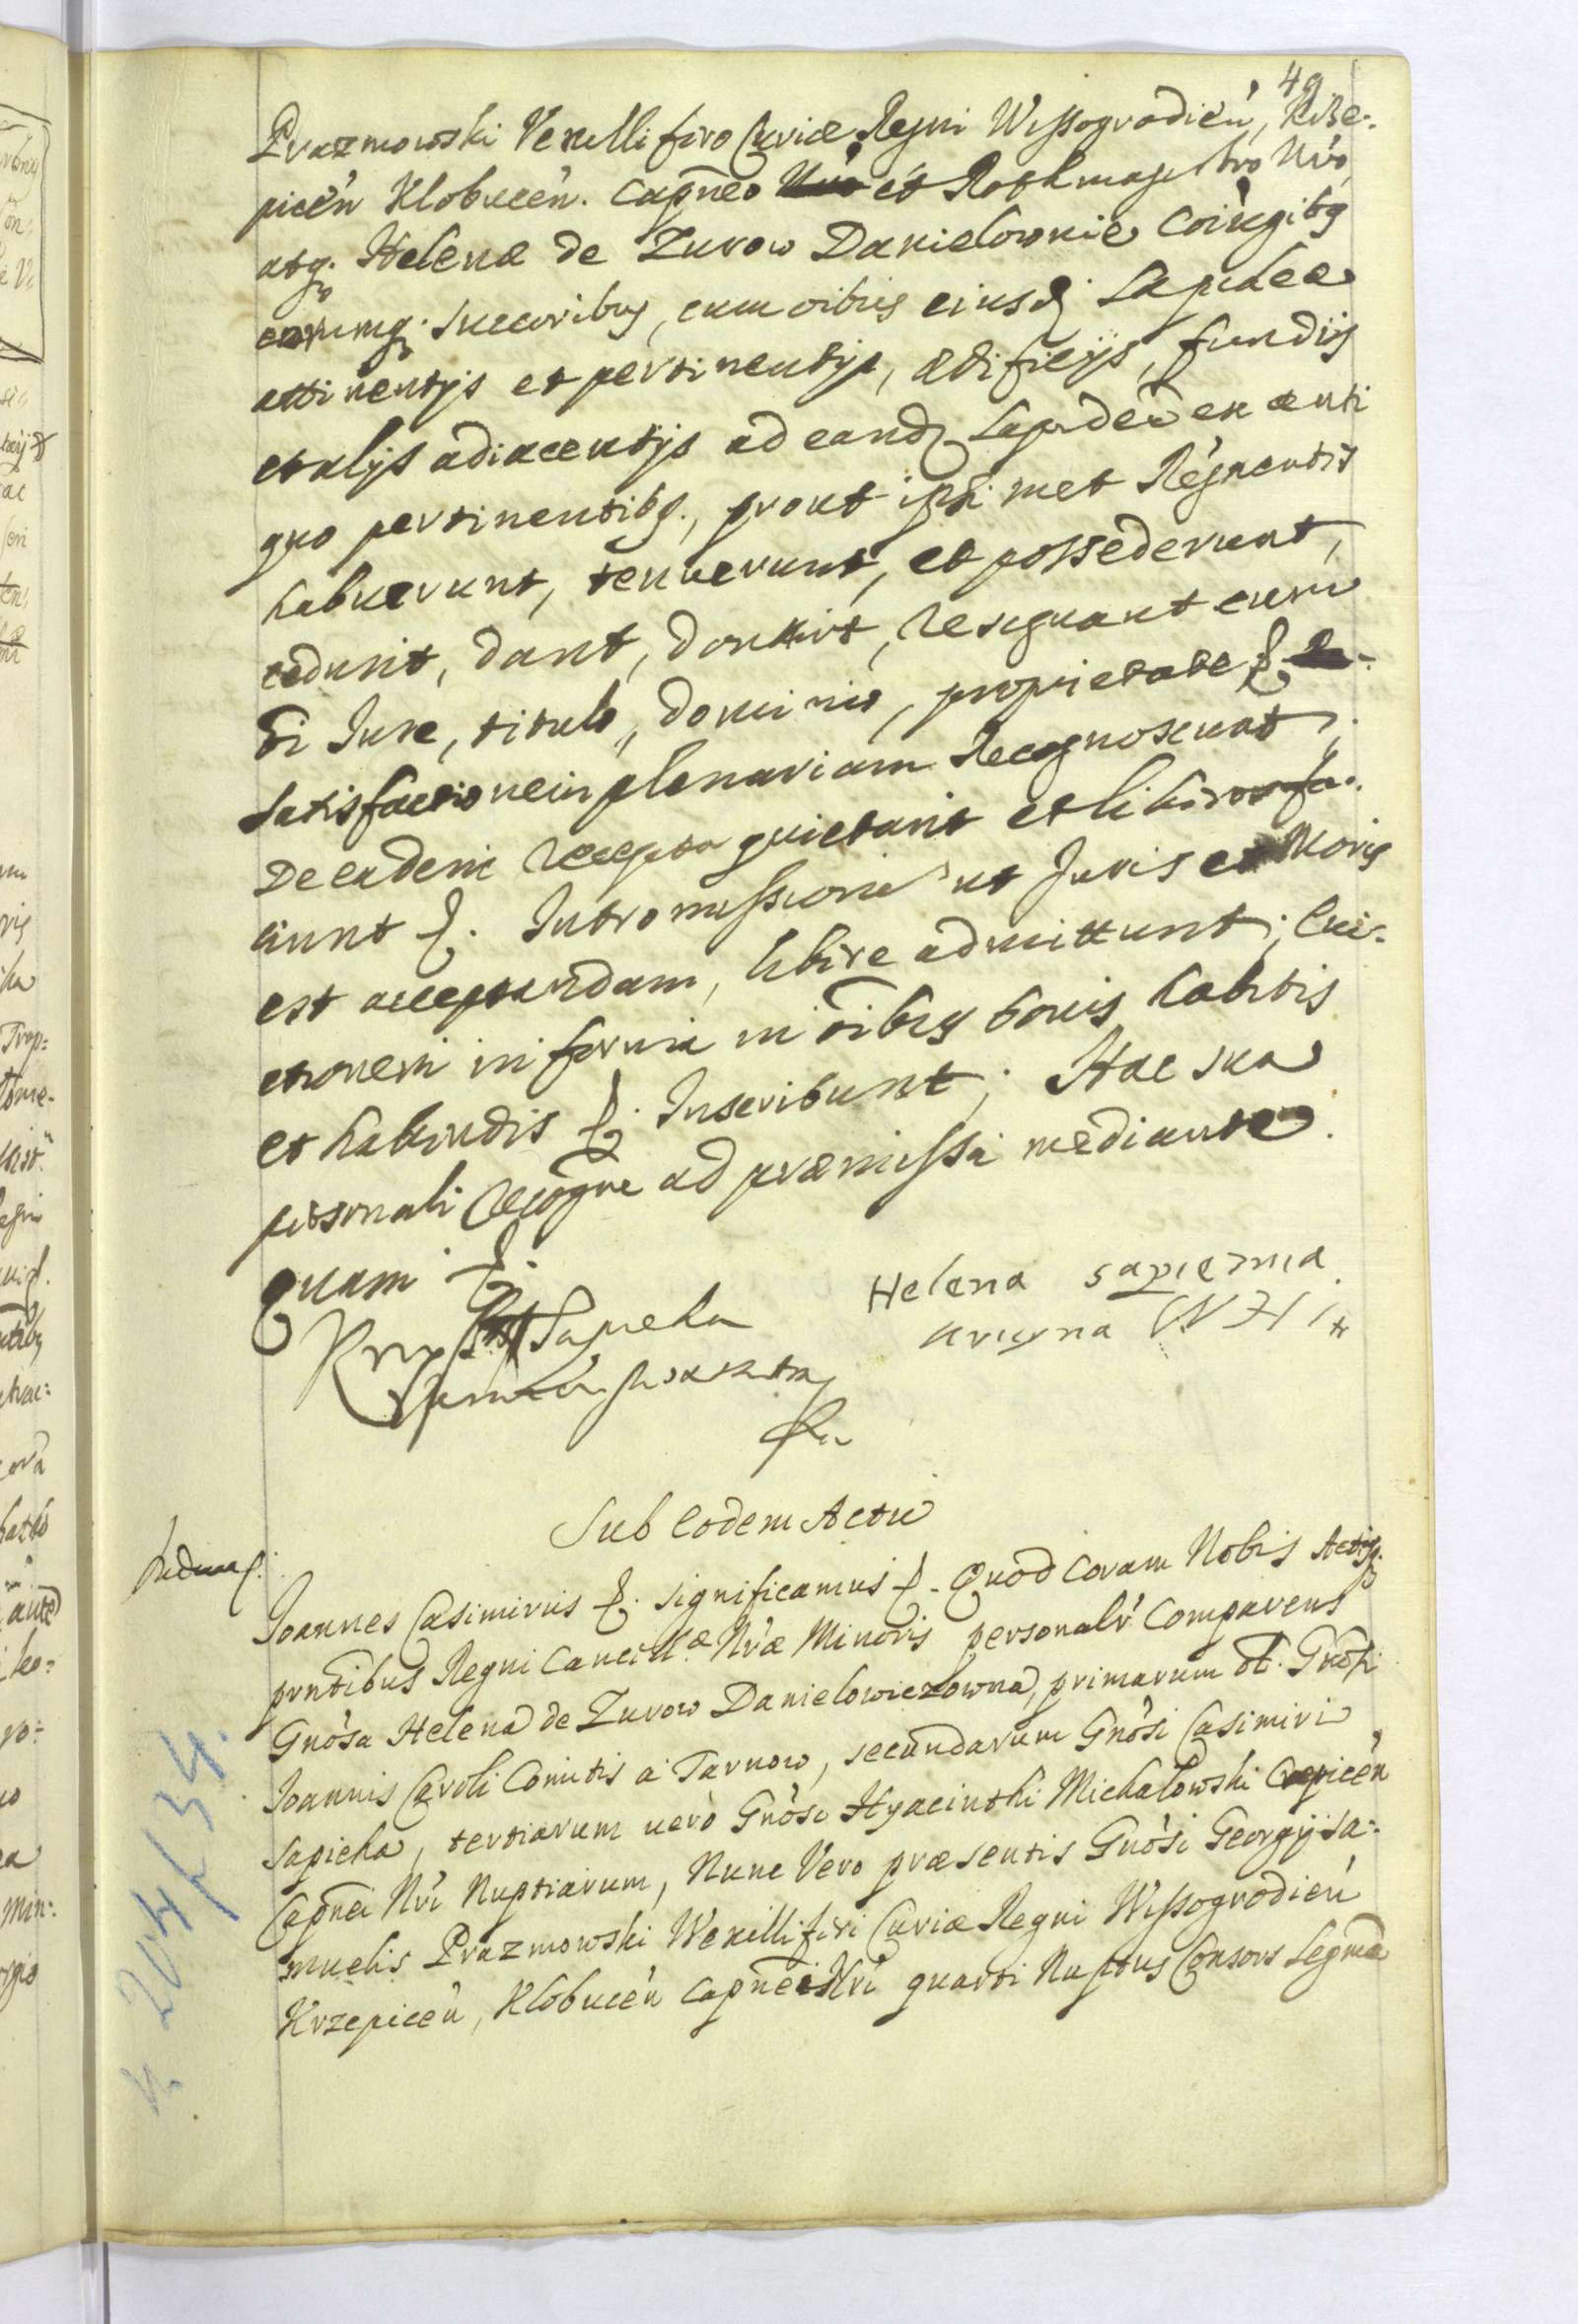 49
Prazmowski Vexillifero Curiæ Regni Wyssogrodień, Krze-
picēn Klobucēn. Capn̄eo et Rothmagistro Nr̄o,
atq. Helenæ de Zurow Danielownie Coniugibg
eorumq. succoribus, cum oibus eiusd. Lapideæ
attinentijs et pertinentijs, ædificijs, fundis
et alijs adiacentijs ad eand. Lapideā ex anti
quo pertinentibg., prout ipsimet Regnentis
habuerunt, tenuerunt, et possederunt,
cedunt, dant, donant, resignant cum
Iure, titulo, dominio, proprietate &
satisfactionem plenariam Recognoscunt;
De eadem recepta quietant et liberos fa-
ciunt &. Intromissionē ut Juris et Moris
est acceptandam, libere admittunt; Evi-
ctionem in forma in oibus bonis habitis
et habendis & Inscribunt; Hac sua
personali recogne ad præmissa mediante.
quam &.
Sapieha
Helena sapiezina
Sub Eodem Actu
Joannes Casimirus &. significamus &. Quod Coram Nobis Actisq.
prntibus Regni Cancell.æ Nr̄æ Minoris personalr̄ Comparens
Gnōsa Helena de Zurow Danielowiczowna, primarum ol. Gnosi
Joannis Caroli Comitis a Tarnow, secundarum Gnōsi Casimiri
Sapieha, tertiarum vero Gnōsi Hyacinthi Michalowski
Capnei Nri Nuptiarum, Nunc Vero præsentis Gnōsi Georgij Sa-
muelis Prazmowski Wexilliferi Curiæ Regni Wyssogrodień
Krzepiceń, Klobuceń Capnei Nri quarti Nuptus Consors Legma
204/34.